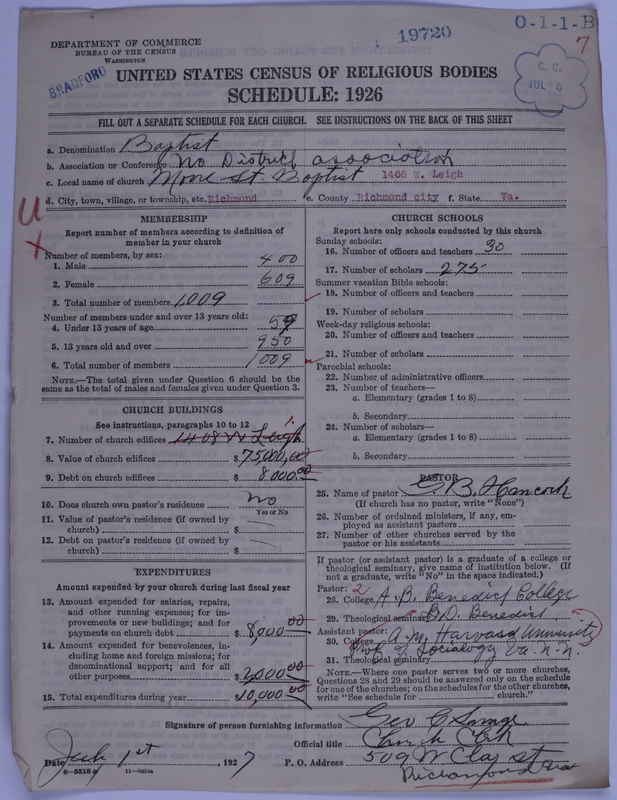 19720
O-1-1-B
7
DEPARTMENT OF COMMERCE
BUREAU OF THE CENSUS
WASHINGTON
BRADFORD
C. C.
JUL 5
UNITED STATES CENSUS OF RELIGIOUS BODIES
SCHEDULE: 1926
FILL OUT A SEPARATE SCHEDULE FOR EACH CHURCH. SEE INSTRUCTIONS ON THE BACK OF THIS SHEET
a. Denomination Baptist
b. Association or Conference No District association
c. Local name of church Moore St Baptist 1408 W. Leigh
d. City, town, village, or township, etc. Richmond e. County Richmond city f. State Va.
MEMBERSHIP
Report number of members according to definition of
member in your church
Number of members, by sex:
1. Male 400
2. Female 609
3. Total number of members 1,009
Number of members under and over 13 years old:
4. Under 13 years of age 59
5. 13 years old and over 950
6. Total number of members 1009
NOTE.—The total given under Question 6 should be the
same as the total of males and females given under Question 3.
CHURCH BUILDINGS
See instructions, paragraphs 10 to 12
7. Number of church edifices 1408 W Leigh 1
8. Value of church edifices $75,000.00
9. Debt on church edifices $ 8000.00
10. Does church own pastor's residence No
Yes or No
11. Value of pastor's residence (if owned by
church) $
12. Debt on pastor's residence (if owned by
church) $
EXPENDITURES
Amount expended by your church during last fiscal year
13. Amount expended for salaries, repairs,
and other running expenses; for im-
provements or new buildings; and for
payments on church debt $ 8,000 00
14. Amount expended for benevolences, in-
cluding home and foreign missions; for
denominational support; and for all
other purposes $ 2,000 00
15. Total expenditures during year $10,000 00
CHURCH SCHOOLS
Report here only schools conducted by this church
Sunday schools:
16. Number of officers and teachers 30
17. Number of scholars 275
Summer vacation Bible schools:
18. Number of officers and teachers
19. Number of scholars
Week-day religious schools:
20. Number of officers and teachers
21. Number of scholars
Parochial schools:
22. Number of administrative officers
23. Number of teachers—
a. Elementary (grades 1 to 8)
b. Secondary
24. Number of scholars—
a. Elementary (grades 1 to 8)
b. Secondary
PASTOR
25. Name of pastor G. B. Hancock
(If church has no pastor, write "None")
26. Number of ordained ministers, if any, em-
ployed as assistant pastors
27. Number of other churches served by the
pastor or his assistants
If pastor (or assistant pastor) is a graduate of a college or
theological seminary, give name of institution below. (If
not a graduate, write "No" in the space indicated.)
Pastor: 2
28. College A. B. Benedict College
29. Theological seminary B.D. Benedict
Assistant pastor:
30. College A.M. Harvard University
Prof. of Sociology Va. U.
31. Theological seminary
NOTE.—Where one pastor serves two or more churches,
Questions 28 and 29 should be answered only on the schedule
for one of the churches; on the schedules for the other churches,
write "See schedule for church."
Signature of person furnishing information Geo C Savage
Official title Church Clerk
Date July 1st, 1927 P. O. Address 509 W Clay St
8-5518 a 11-9014a Richmond Va